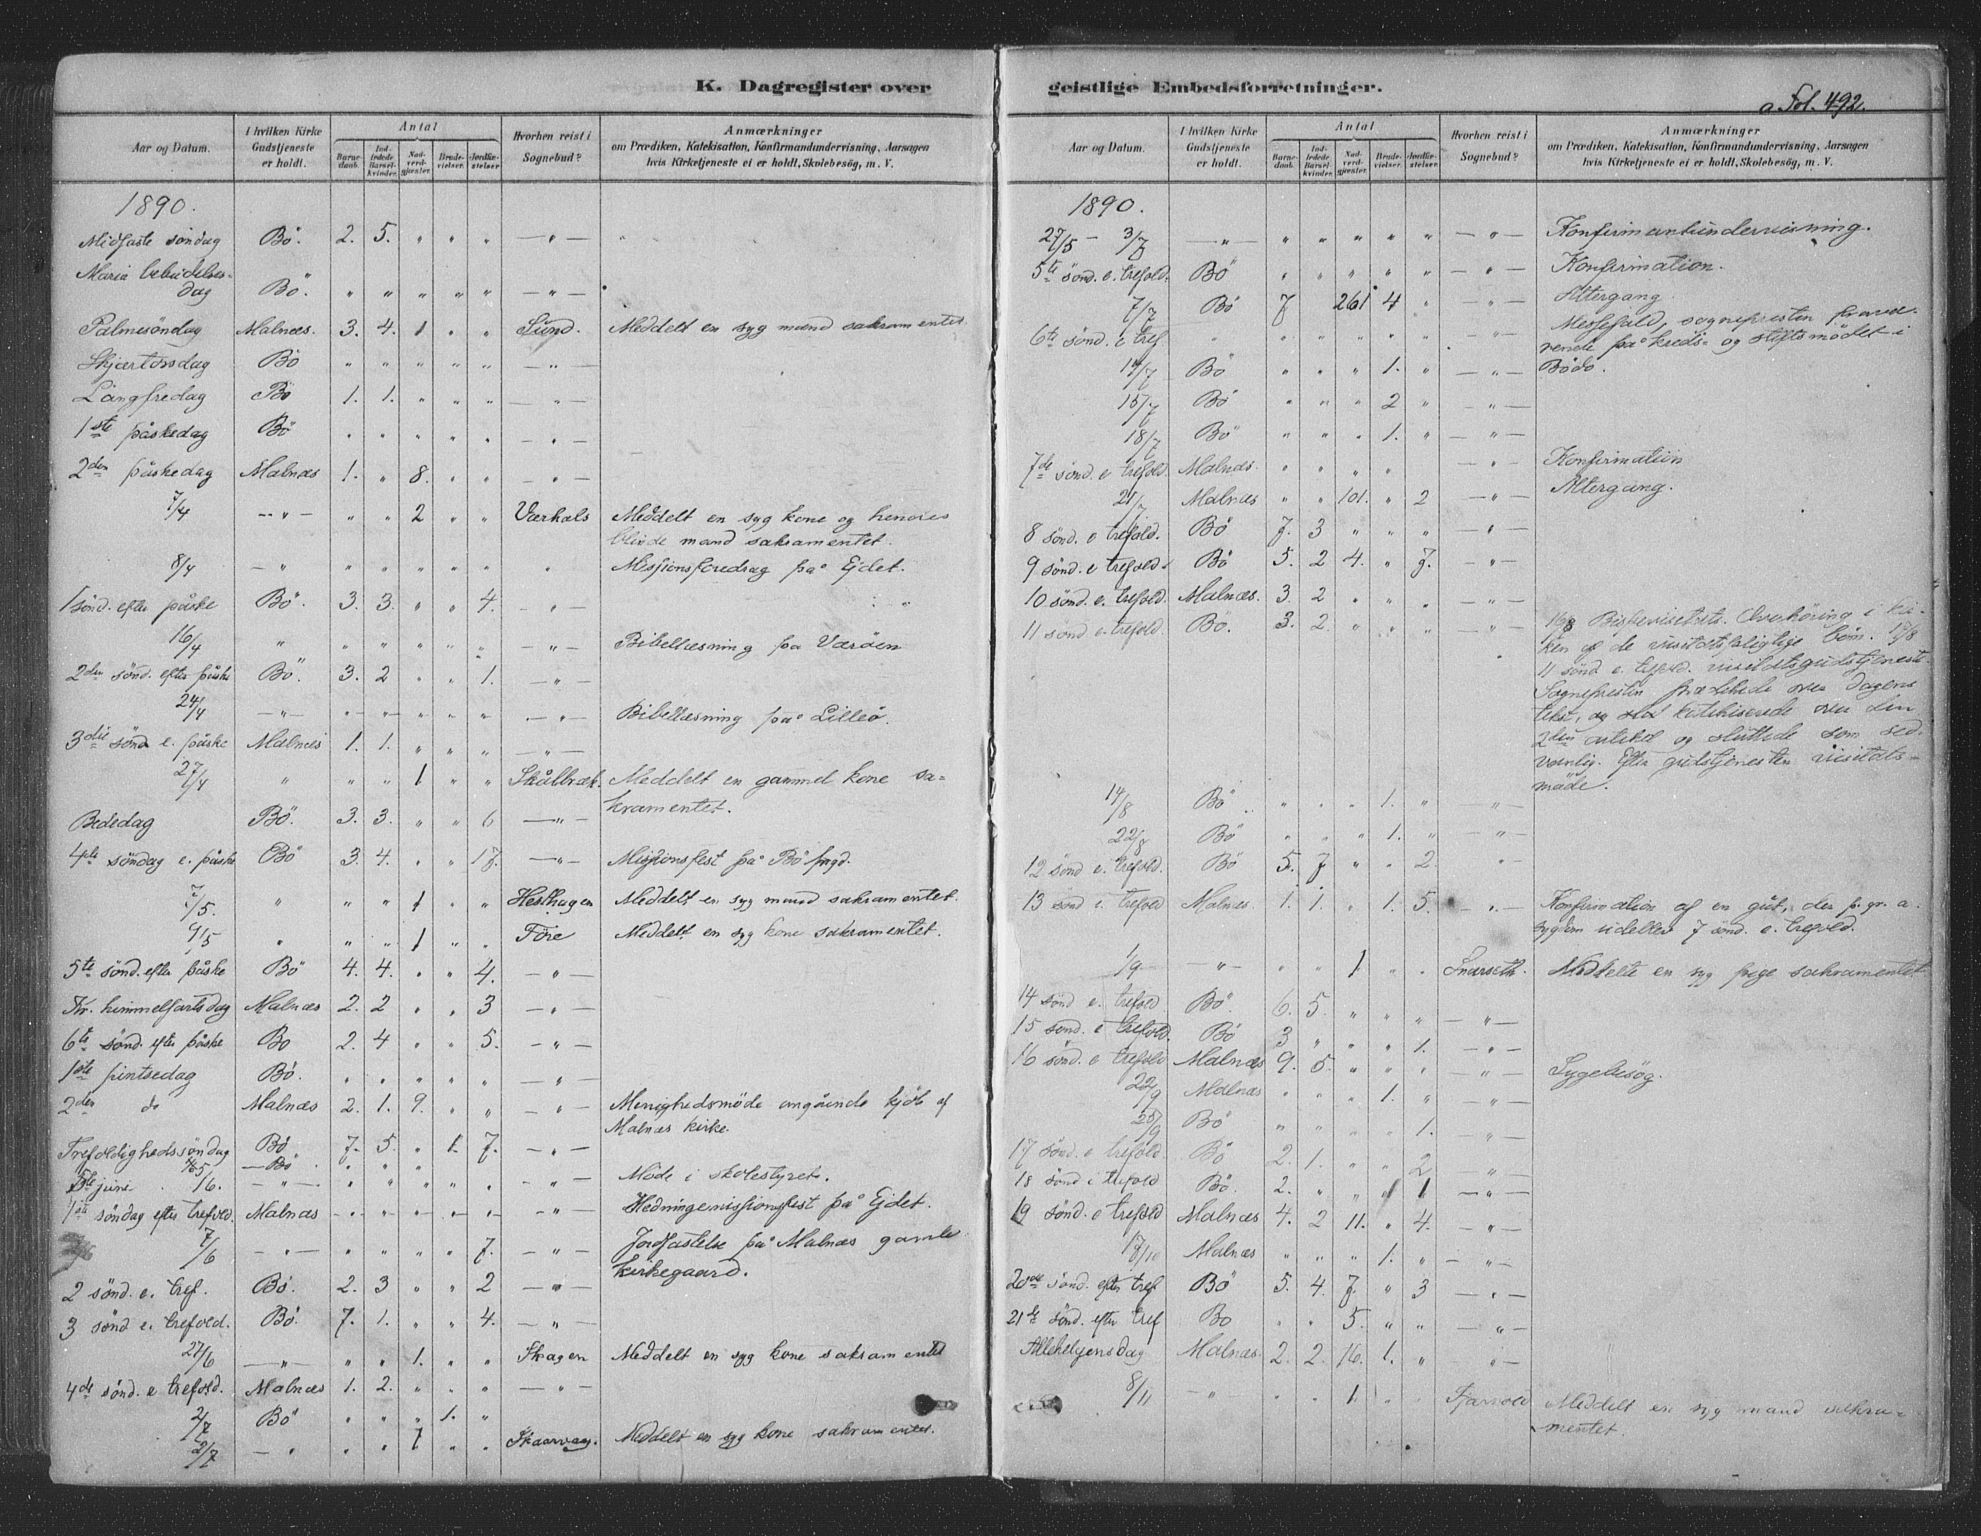 K. Dagregister over
Aar og Datum.
I hvilken Kirke Gudstjeneste er holdt.
Antal
Barnedaab. Indledede Barselkvinder. Nadverdgjæster. Brudevielser. Jordfæstelser.
Hvorhen reist i Sognebud?
Anmærkninger
om Prædiken, Katekisation, Konfirmandundervisning, Aarsagen
hvis Kirketjeneste ei er holdt, Skolebesøg, m. V.
1890.
Midfaste søndag Bö. 2. 5. " " " — " — "
Maria bebudelses-
dag Bö. " " " " " — " —
Palmesöndag Malnæs. 3. 4. 1 " " Sund. Meddelt en syg mand sakramentet
Skjærtorsdag Bö " " " " " — " —
Langfredag Bö 1. 1. " " " — " —
1ste påskedag Bö " " " " " — " —
2den påskedag Malnæs 1. " 8. " " — " —
7/4 — " — " " 2 " " Værhals Meddelt en syg kone og hendes
blinde mand sakramentet.
8/4 — " " " " " " " Missionsforedrag på Ejdet.
1 sönd. efter påske Bö. 3. 3. " " 4. — " —
16/4 " " " " " " — " — Bibellæsning på Værøen
2den sönd. efter påske Bö. 3. 2 " " 1. — " —
24/4 — " — " " " " " — " — Bibellæsning på Lilleö.
3die sönd e. påske Malnæs 1. 1. " " " — " —
27/4 " " " 1 " " Skålbræk. Meddelt en gammel kone sa-
kramentet.
Bededag Bö. 3. 3. " " 6 — " —
4de söndag e. påske Bö 3. 4. " " 17. — " — Missionsfest på Bö pgd.
7/5. " " " 1 " " Hesthagen Meddelt en syg mand sakramentet.
9/5 " " " 1 " " Före Meddelt en syg kone sakramentet.
5te sönd. efter påske Bö 4. 4. " " 4. — " —
Kr. himmelfartsdag Malnæs 2. 2 " " 3 — " —
6te sönd. efter påske Bö 2. 4 " " 5. — " —
1ste pintsedag Bö. " " " " " — " —
2den do Malnæs 2. 1. 9. " " — " — Menighedsmöde angående kjöb af
Malnæs kirke.
Trefoldighedssöndag Bö 7. 5. " 1. 7. — " —
— Bö " " "
5te juni 16. — " — " " " " " — " — Möde i skolestyret.
1ste söndag efter trefold. Malnæs " " " " " — " — Hedningemissionsfest på Ejdet.
7/6 — " — " " " " 7. — " — Jordfæstelse på Malnæs gamle
kirkegaard.
2 sönd. e. tref. Bö. 2. 3 " " 2 — " —
3 sönd e. trefold. Bö. 7. 1. " " 4. — " —
27/6 — " — " " 1. " " Skagen Meddelt en syg kone sakramentet
4de sönd. e trefold. Malnæs 1. 2. " " " — " —
2/7 Bö " " " 1. "
2/7 — " " " 1 " " Skaarvaag. Meddelt en syg kone sakramentet.
geistlige Embedsforretninger.
Fol. 492.
Aar og Datum.
I hvilken Kirke Gudstjeneste er holdt.
Antal
Barnedaab. Indledede Barselkvinder. Nadverdgjæster. Brudevielser. Jordfæstelser.
Hvorhen reist i Sognebud?
Anmærkninger
om Prædiken, Katekisation, Konfirmandundervisning, Aarsagen
hvis Kirketjeneste ei er holdt, Skolebesøg, m. V.
1890.
27/5 – 3/7 — " — " " " " " — " — Konfirmantundervisning.
5te sönd. e. trefold. Bö " " " " " — " — Konfirmation.
7/7 Bö 7 261 4 " — " — Altergang.
6te sönd. e tref. " " " " " " — " — Messefald, sognepresten fravæ-
rende på kreds- og stiftsmödet i
14/7 Bö " " " 1. " — " — Bödö.
15/7 Bö " " " 2 " — " —
18/7 Bö " " " 1. " — " —
7de sönd e trefold. Malnæs. " " " " " — " — Konfirmation
21/7 Malnæs " " 101. " 2 — " — Altergang.
8 sönd. e trefold. Bö 7. 3 " " " "
9 sönd. e trefold. Bö 5. 2 4. " 7. — " —
10 sönd. e. trefold. Malnæs. 3. 2 " " " — " —
11 sönd e. trefold. Bö. 3. 2. " " " — " — 16/8 Bispevisitats. Overhöring i kir-
ken af de visitatspligtige börn. 17/8
11 sönd e. trefold. visitatsgudstjeneste.
Sognepresten prædikede over dagens
tekst, og katekiserede over den
2den artikel og sluttede som sed-
vanlig. Efter gudstjenesten visitats-
möde.
14/8 Bö " " " 1. " "
22/8 Bö " " " 1. " — " —
12 sönd e. trefold. Bö 5. 7 " " 2 "
13 sönd e. trefold Malnæs. 1. 1. " 1 5. — " — Konfirmation af en gut, der p. gr. a.
sygdom udeblev 7 sönd. e. trefold.
1/9 — " — " " 1 " " Snarseth. Meddelte en syg pige sakramentet
14 sönd e. trefold Bö. 6. 5. " " " — " —
15 sönd. e trefold. Bö 3 " " " 1. "
16 sönd. e trefold Malnæs 9. 5. " " " — " — Sygebesög.
22/9 Malnæs " " " 1. " — " —
25/9 Bö " " " " 1. — " —
17 sönd e trefold Bö 2. 1. " " 2 "
18 sönd e trefold Bö. 2. " " 1 1 — " —
19 sönd. e trefold Malnæs 4. 2 11. " 4. — " —
Malnæs " " " 1. " — " —
20de sönd. efter tref Bö 5. 4. 7. " 3 — " —
21de sönd. efter tref Bö " " 5. " " — " —
Allehelgensdag Malnæs 2. 2. 16. 1. " " —
8/11 — " — " " 1 " " Meddelt en syg mand sakra-
mentet.